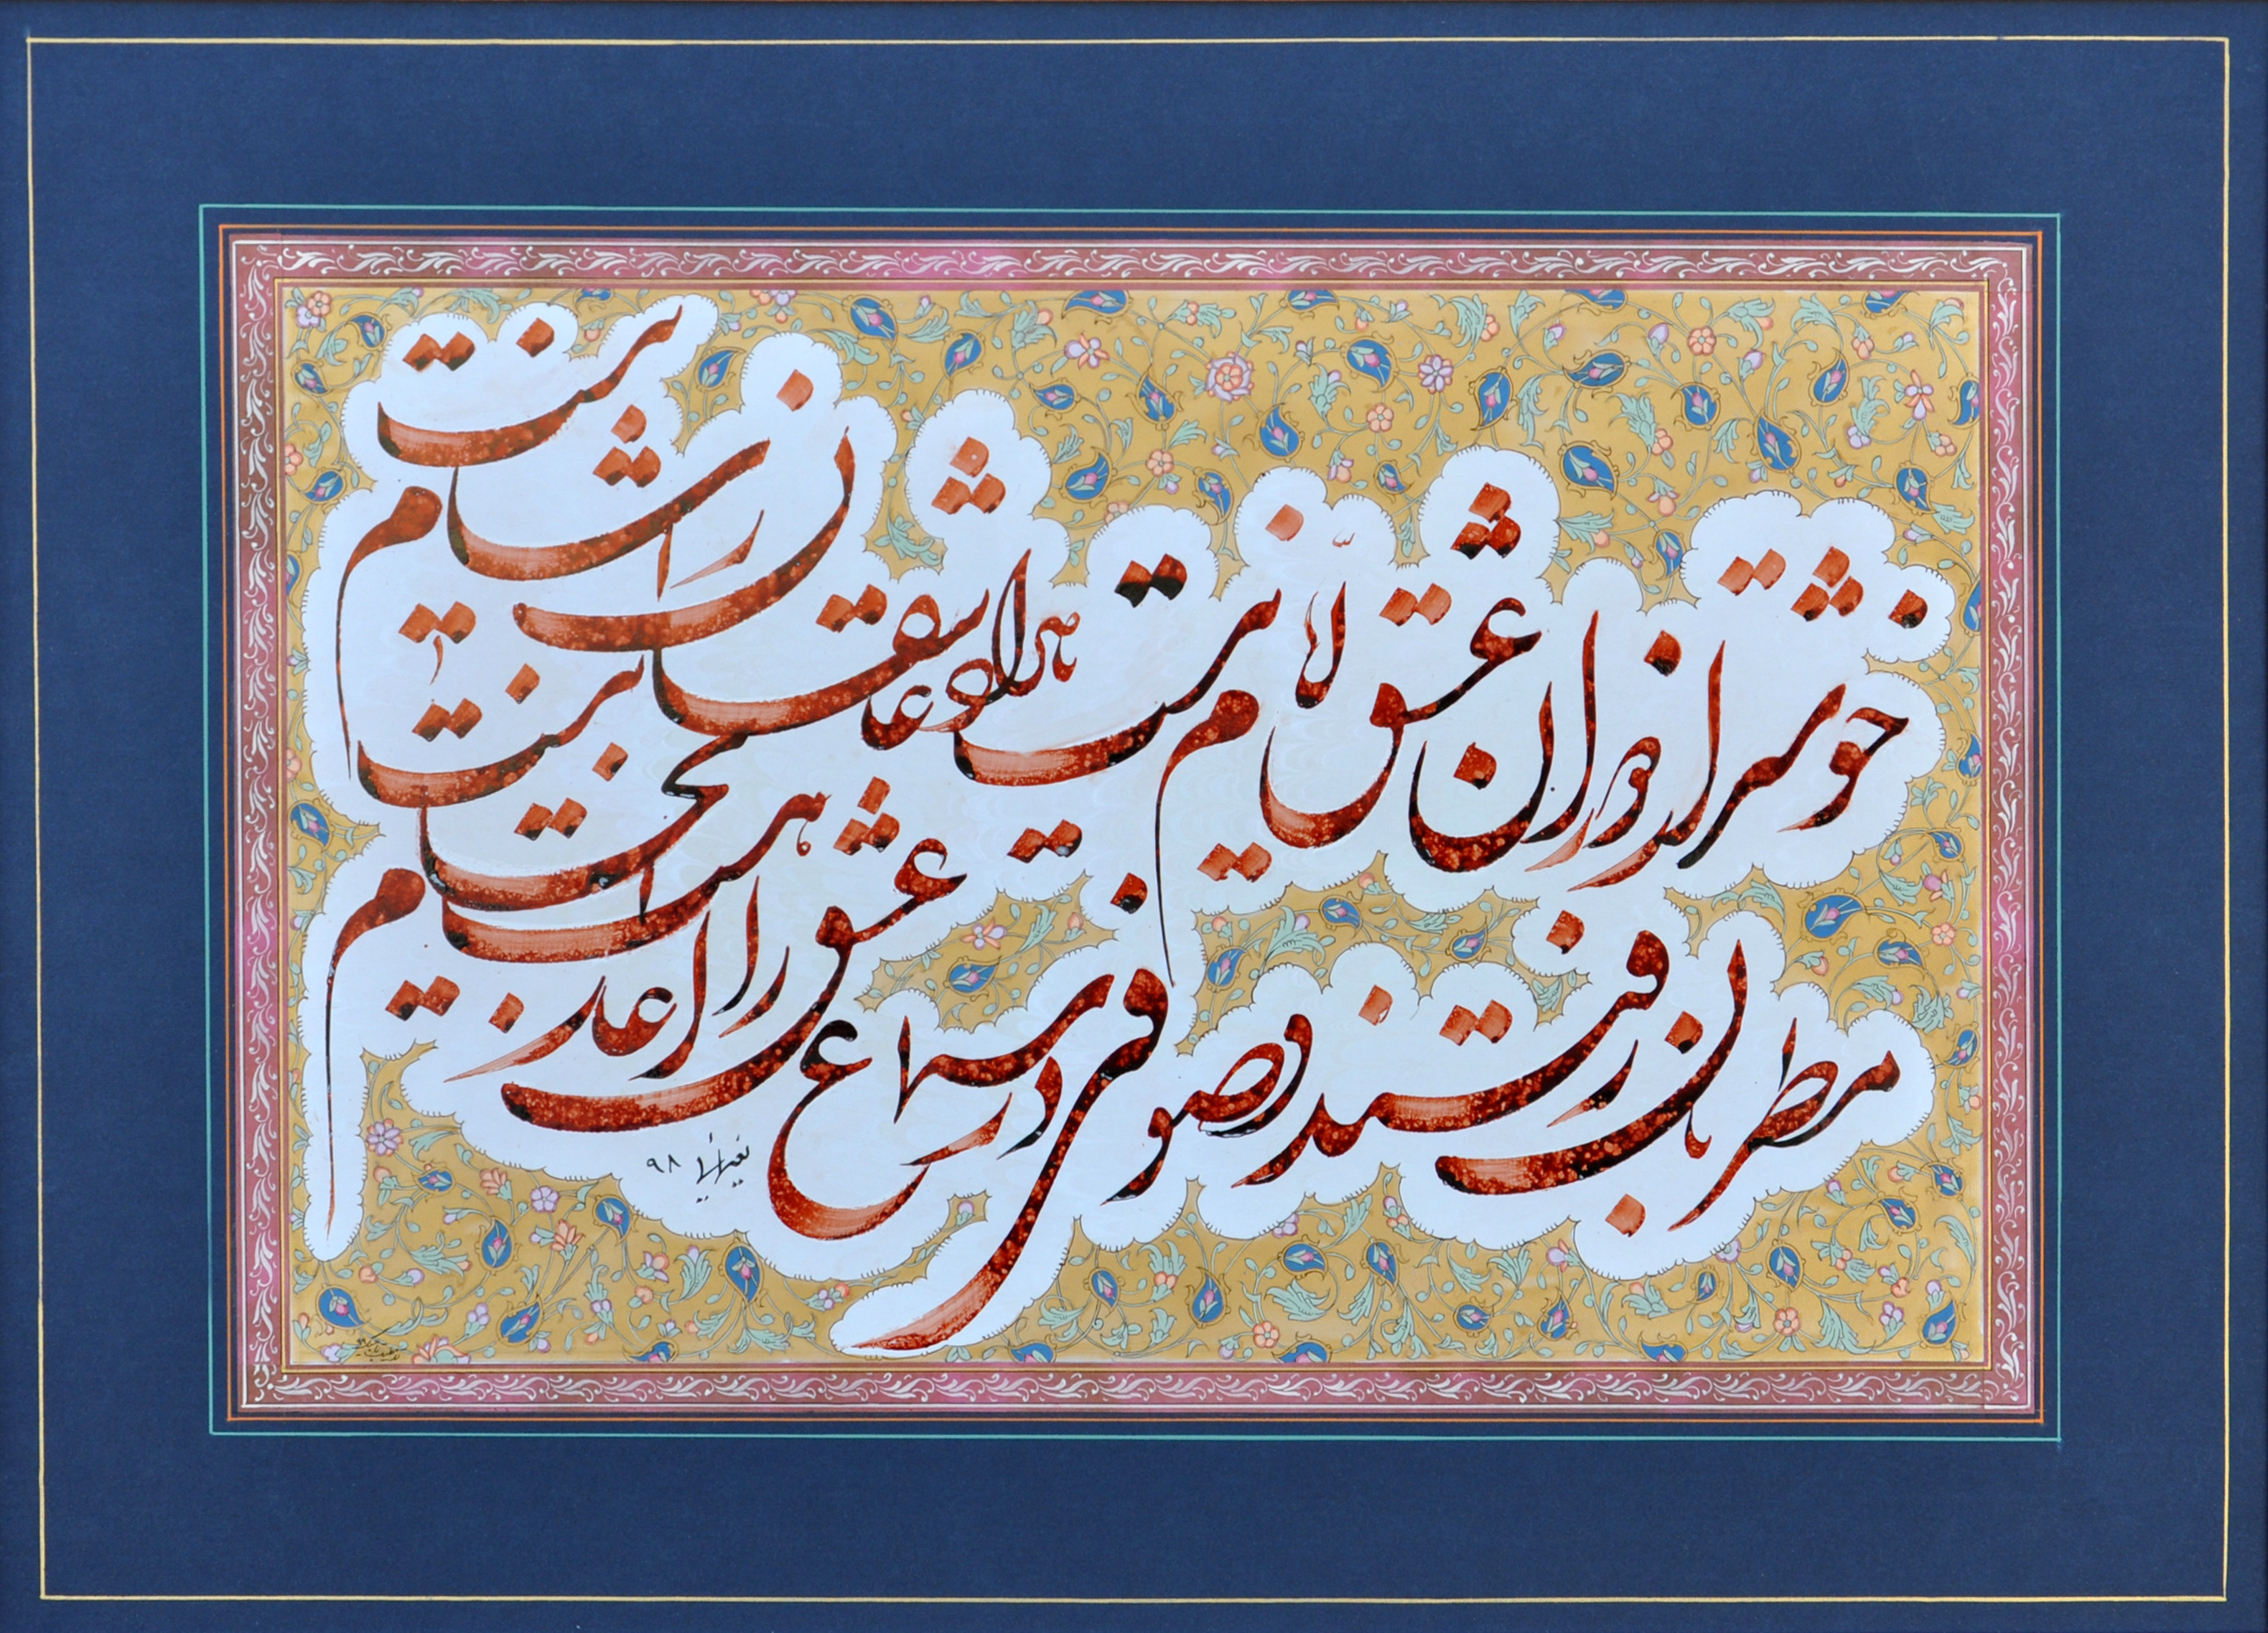 خوشتر از دوران عشق ایام نیست
بامداد عاشقان را شام نیست
مطربان رفتند و صوفی در سماع
عشق را آغاز هست انجام نیست
۹۸